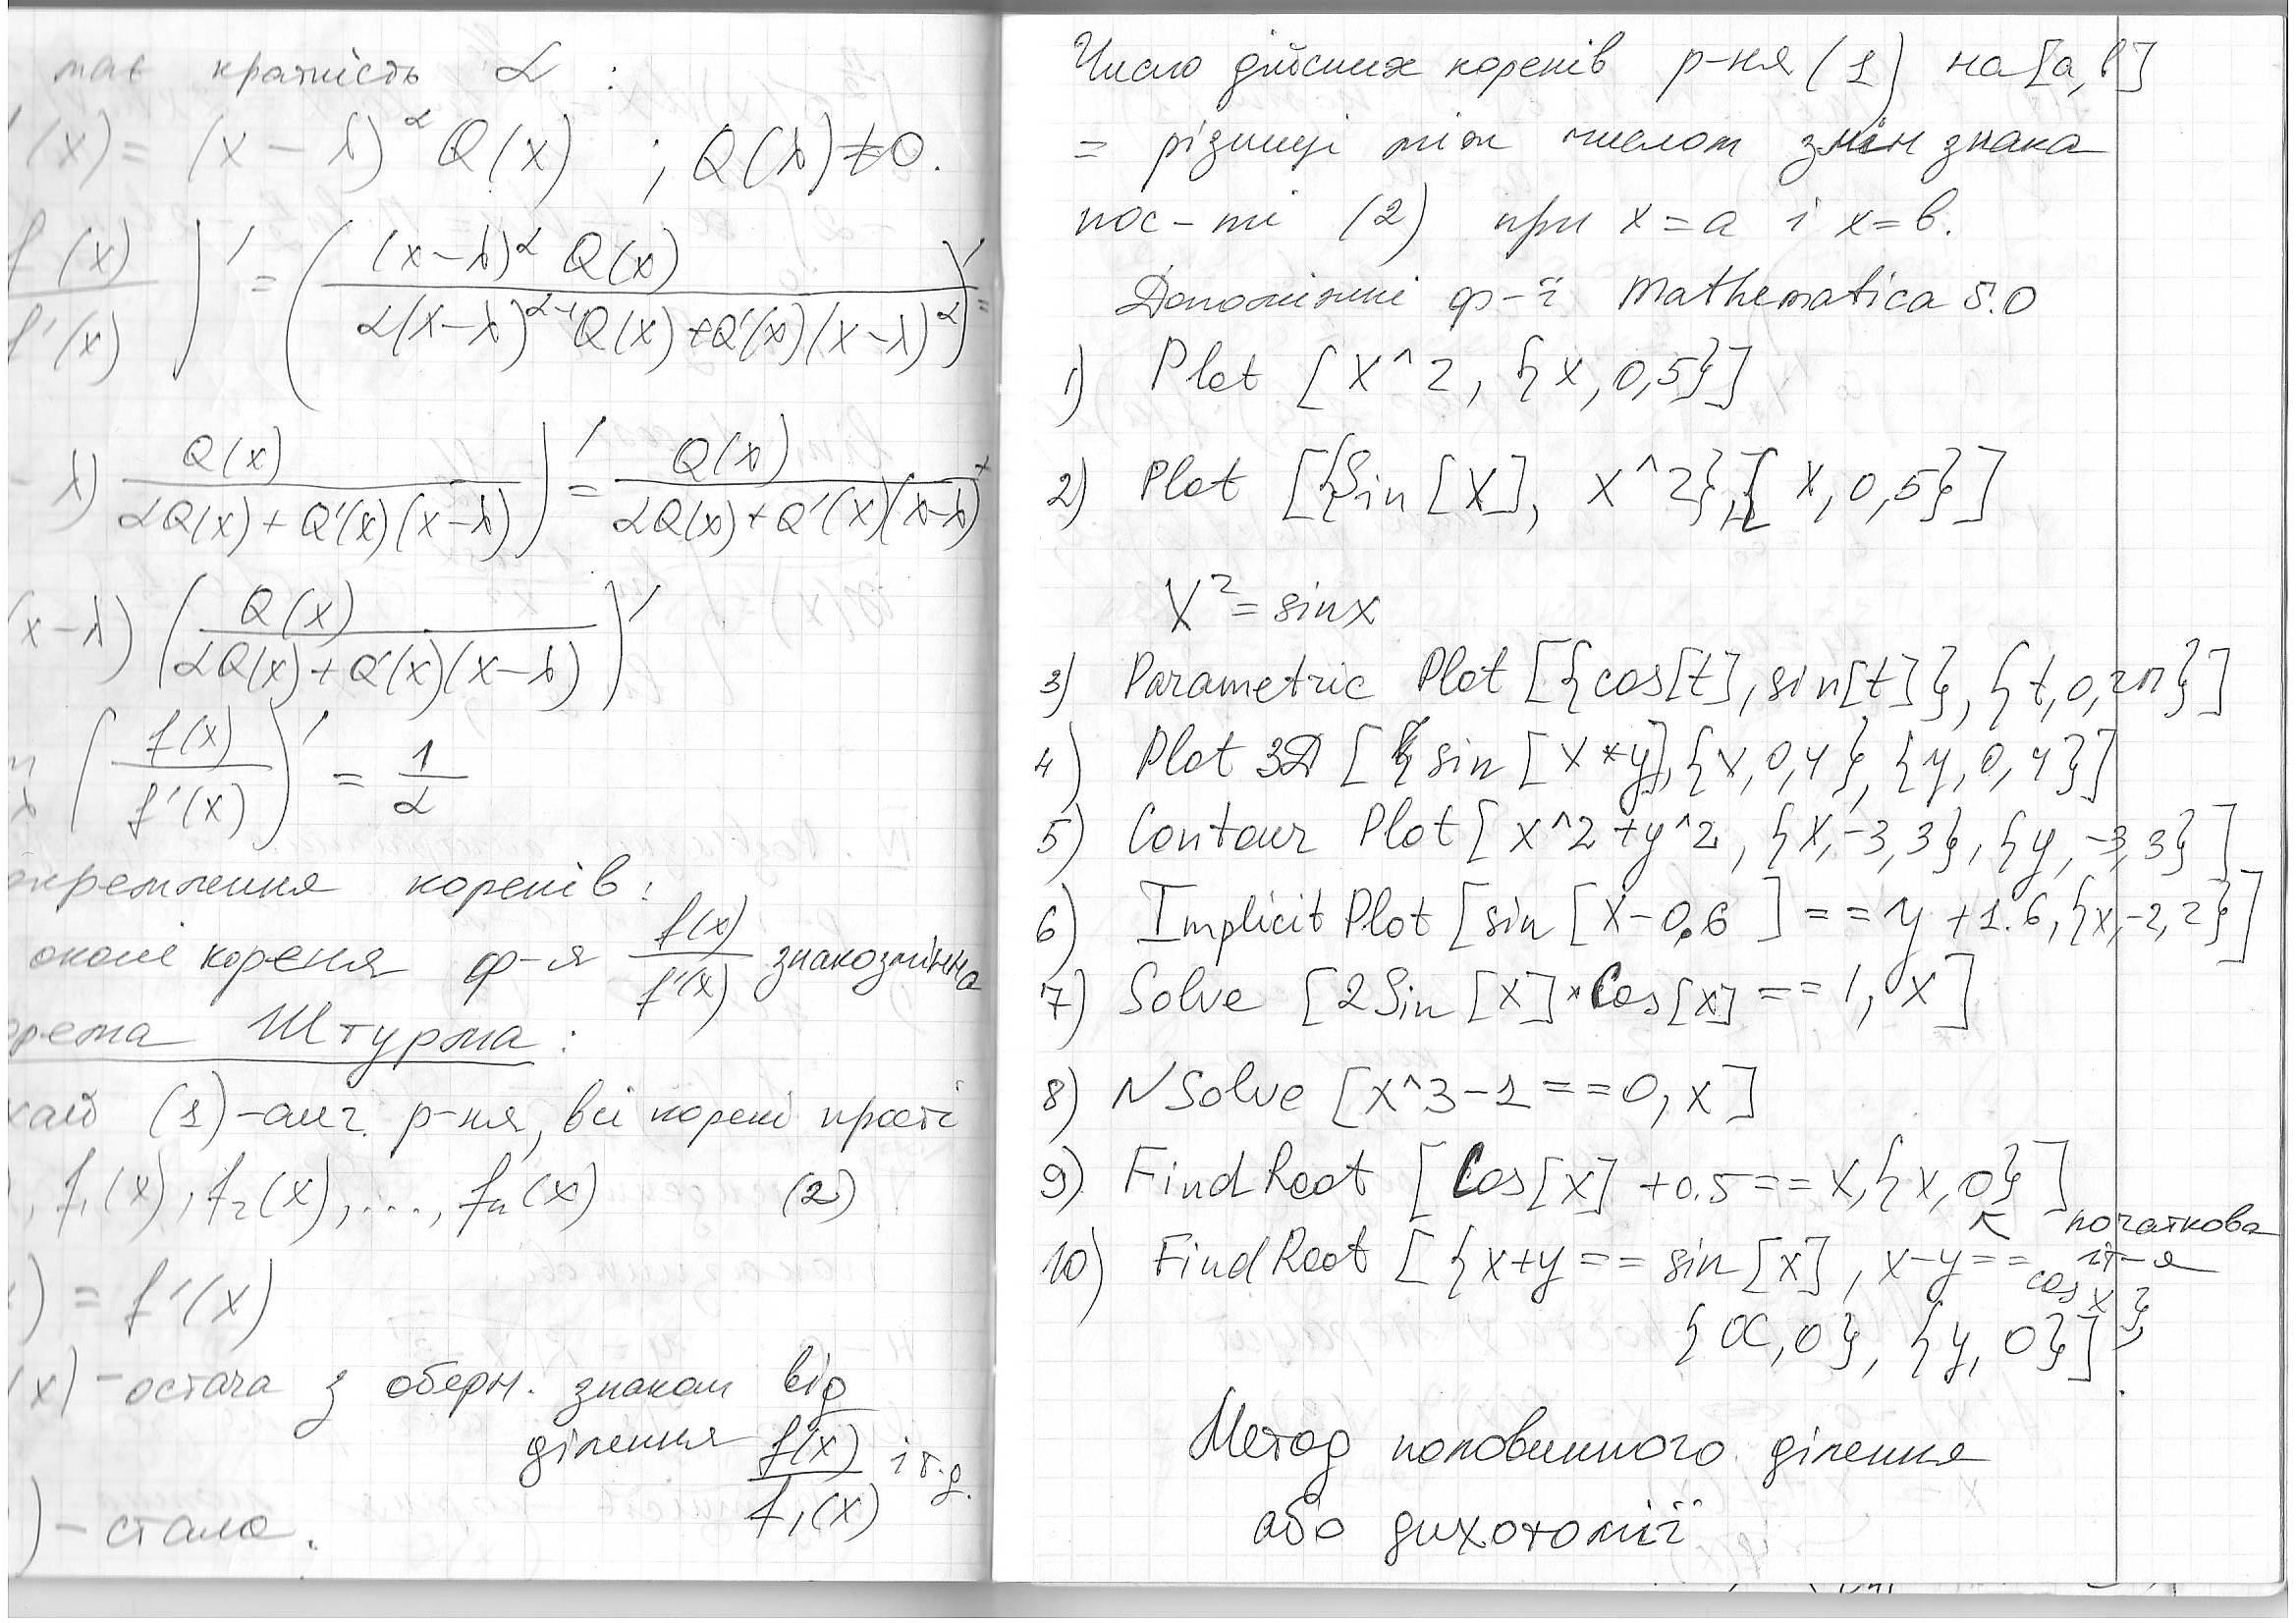 має кратність α :
(x) = (x − λ)^α Q(x) ; Q(λ) ≠ 0.
f(x) / f'(x) )' = ( (x−λ)^α Q(x) / α(x−λ)^(α−1) Q(x) + Q'(x)(x−λ)^α )' =
− λ) Q(x) / αQ(x) + Q'(x)(x−λ) )' = Q(x) / αQ(x) + Q'(x)(x−λ) +
(x−λ) ( Q(x) / αQ(x) + Q'(x)(x−λ) )'
( f(x) / f'(x) )' = 1 / α
окремлення коренів:
околі кореня ф-я f(x) / f'(x) знакозмінна
орема Штурма :
хай (1)-алг. р-ня, всі корені прості
, f₁(x), f₂(x), ..., fₙ(x) (2)
) = f'(x)
(x) – остача з оберн. знаком від
ділення f(x) / f₁(x) і т.д.
) – стала.
Число дійсних коренів р-ня (1) на [a, b]
= різниці між числом змін знака
пос-ті (2) при x = a і x = b.
Допоміжні ф-ї Mathematica 5.0
1) Plot [x^2, {x, 0,5}]
2) Plot [{Sin [x], x^2},{x, 0,5}]
x² = sinx
3) Parametric Plot [{cos[t], sin[t]}, {t, 0, 2π}]
4) Plot 3D [ sin [x *y], {x, 0,4}, {y, 0,4}]
5) Contour Plot [ x^2 + y^2, {x,-3,3}, {y,-3,3} ]
6) Implicit Plot [sin [x-0.6 ] == y +1.6, {x,-2,2}]
7) Solve [2Sin [x] * Cos[x] == 1, x]
8) NSolve [x^3-1 ==0, x]
9) Find Root [ Cos[x] +0.5 == x, {x, 0} ]
↖ початкова
іт-я
10) Find Root [ {x+y == sin [x], x-y == cos x},
{x, 0}, {y, 0}]
Метод половинного ділення
або дихотомії